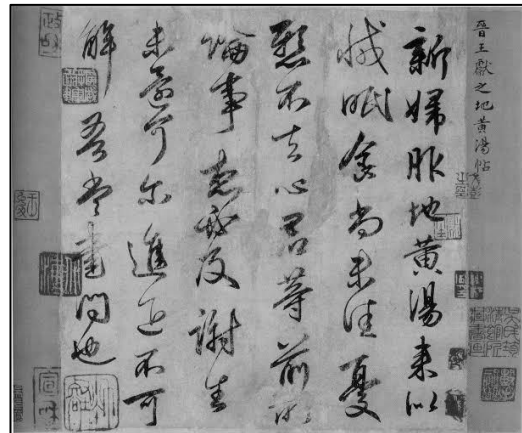 晉王獻之地黃湯帖
新婦服地黃湯來似
減眠食尚未佳憂
懸不去心君等前所
論事想必及謝生
未還可尔進退不可
解吾當書問也
宣和